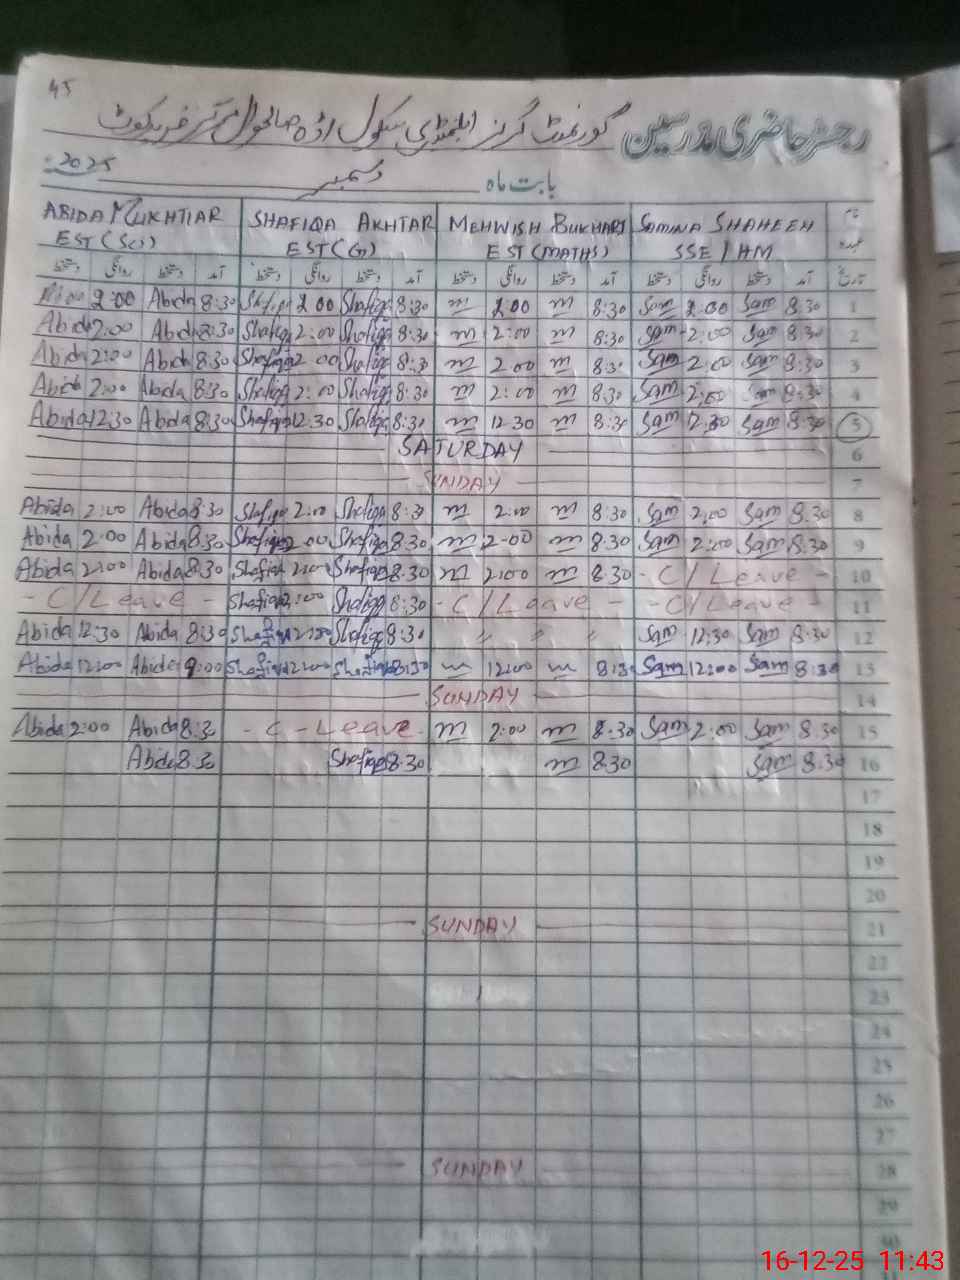 45
رجسٹر حاضری مدرسین گورنمنٹ گرلز ایلیمنٹری سکول اڈہ صالحوال مرکز فریدکوٹ
بابت ماہ دسمبر 2025
ABIDA MUKHTIAR SHAFIQA AKHTAR MEHWISH BUKHARI SAMINA SHAHEEN نام
EST (Sci) EST (G) EST (MATHS) SSE / HM عہدہ
دستخط روانگی دستخط آمد دستخط روانگی دستخط آمد دستخط روانگی دستخط آمد دستخط روانگی دستخط آمد تاریخ
2:00 Abida 8:30 Shafiqa 2 00 Shafiqa 8:30 m 2:00 m 8:30 Sam 2:00 Sam 8.30 1
Abida 2:00 Abida 8:30 Shafiqa 2:00 Shafiqa 8:30 m 2:00 m 8:30 Sam 2:00 Sam 8:30 2
Abida 2:00 Abida 8:30 Shafiqa 2 00 Shafiqa 8:3 m 2 00 m 8:3 Sam 2:00 Sam 8:30 3
Abida 2:00 Abida 8:30 Shafiqa 2:00 Shafiqa 8:30 m 2:00 m 8:30 Sam 2:00 Sam 8:30 4
Abida 12:30 Abida 8:30 Shafiqa 12.30 Shafiqa 8:30 m 12 30 m 8:30 Sam 12:30 Sam 8:30 5
SATURDAY 6
SUNDAY 7
Abida 2:00 Abida 8:30 Shafiqa 2:00 Shafiqa 8:30 m 2:00 m 8:30 Sam 2:00 Sam 8.30 8
Abida 2:00 Abida 8:30 Shafiqa 2 00 Shafiqa 8:30 m 2:00 m 8:30 Sam 2:00 Sam 8:30 9
Abida 2:00 Abida 8:30 Shafiqa 2:00 Shafiqa 8:30 m 2:00 m 8:30 - C / Leave - 10
- C / Leave - Shafiqa 2:00 Shafiqa 8:30 - C / Leave - - C / Leave - 11
Abida 12:30 Abida 8:30 Shafiqa 12:30 Shafiqa 8:30 " " " " Sam 12:30 Sam 8:30 12
Abida 12:00 Abida 9:00 Shafiqa 12:00 Shafiqa 8:30 m 12:00 m 8:30 Sam 12:00 Sam 8:30 13
SUNDAY 14
Abida 2:00 Abida 8:3 - C - Leave - m 2:00 m 8.30 Sam 2:00 Sam 8.30 15
Abida 8:30 Shafiqa 8.30 m 8.30 Sam 8.30 16
17
18
19
20
SUNDAY 21
22
23
24
25
26
27
SUNDAY 28
29
30
16-12-25 11:43